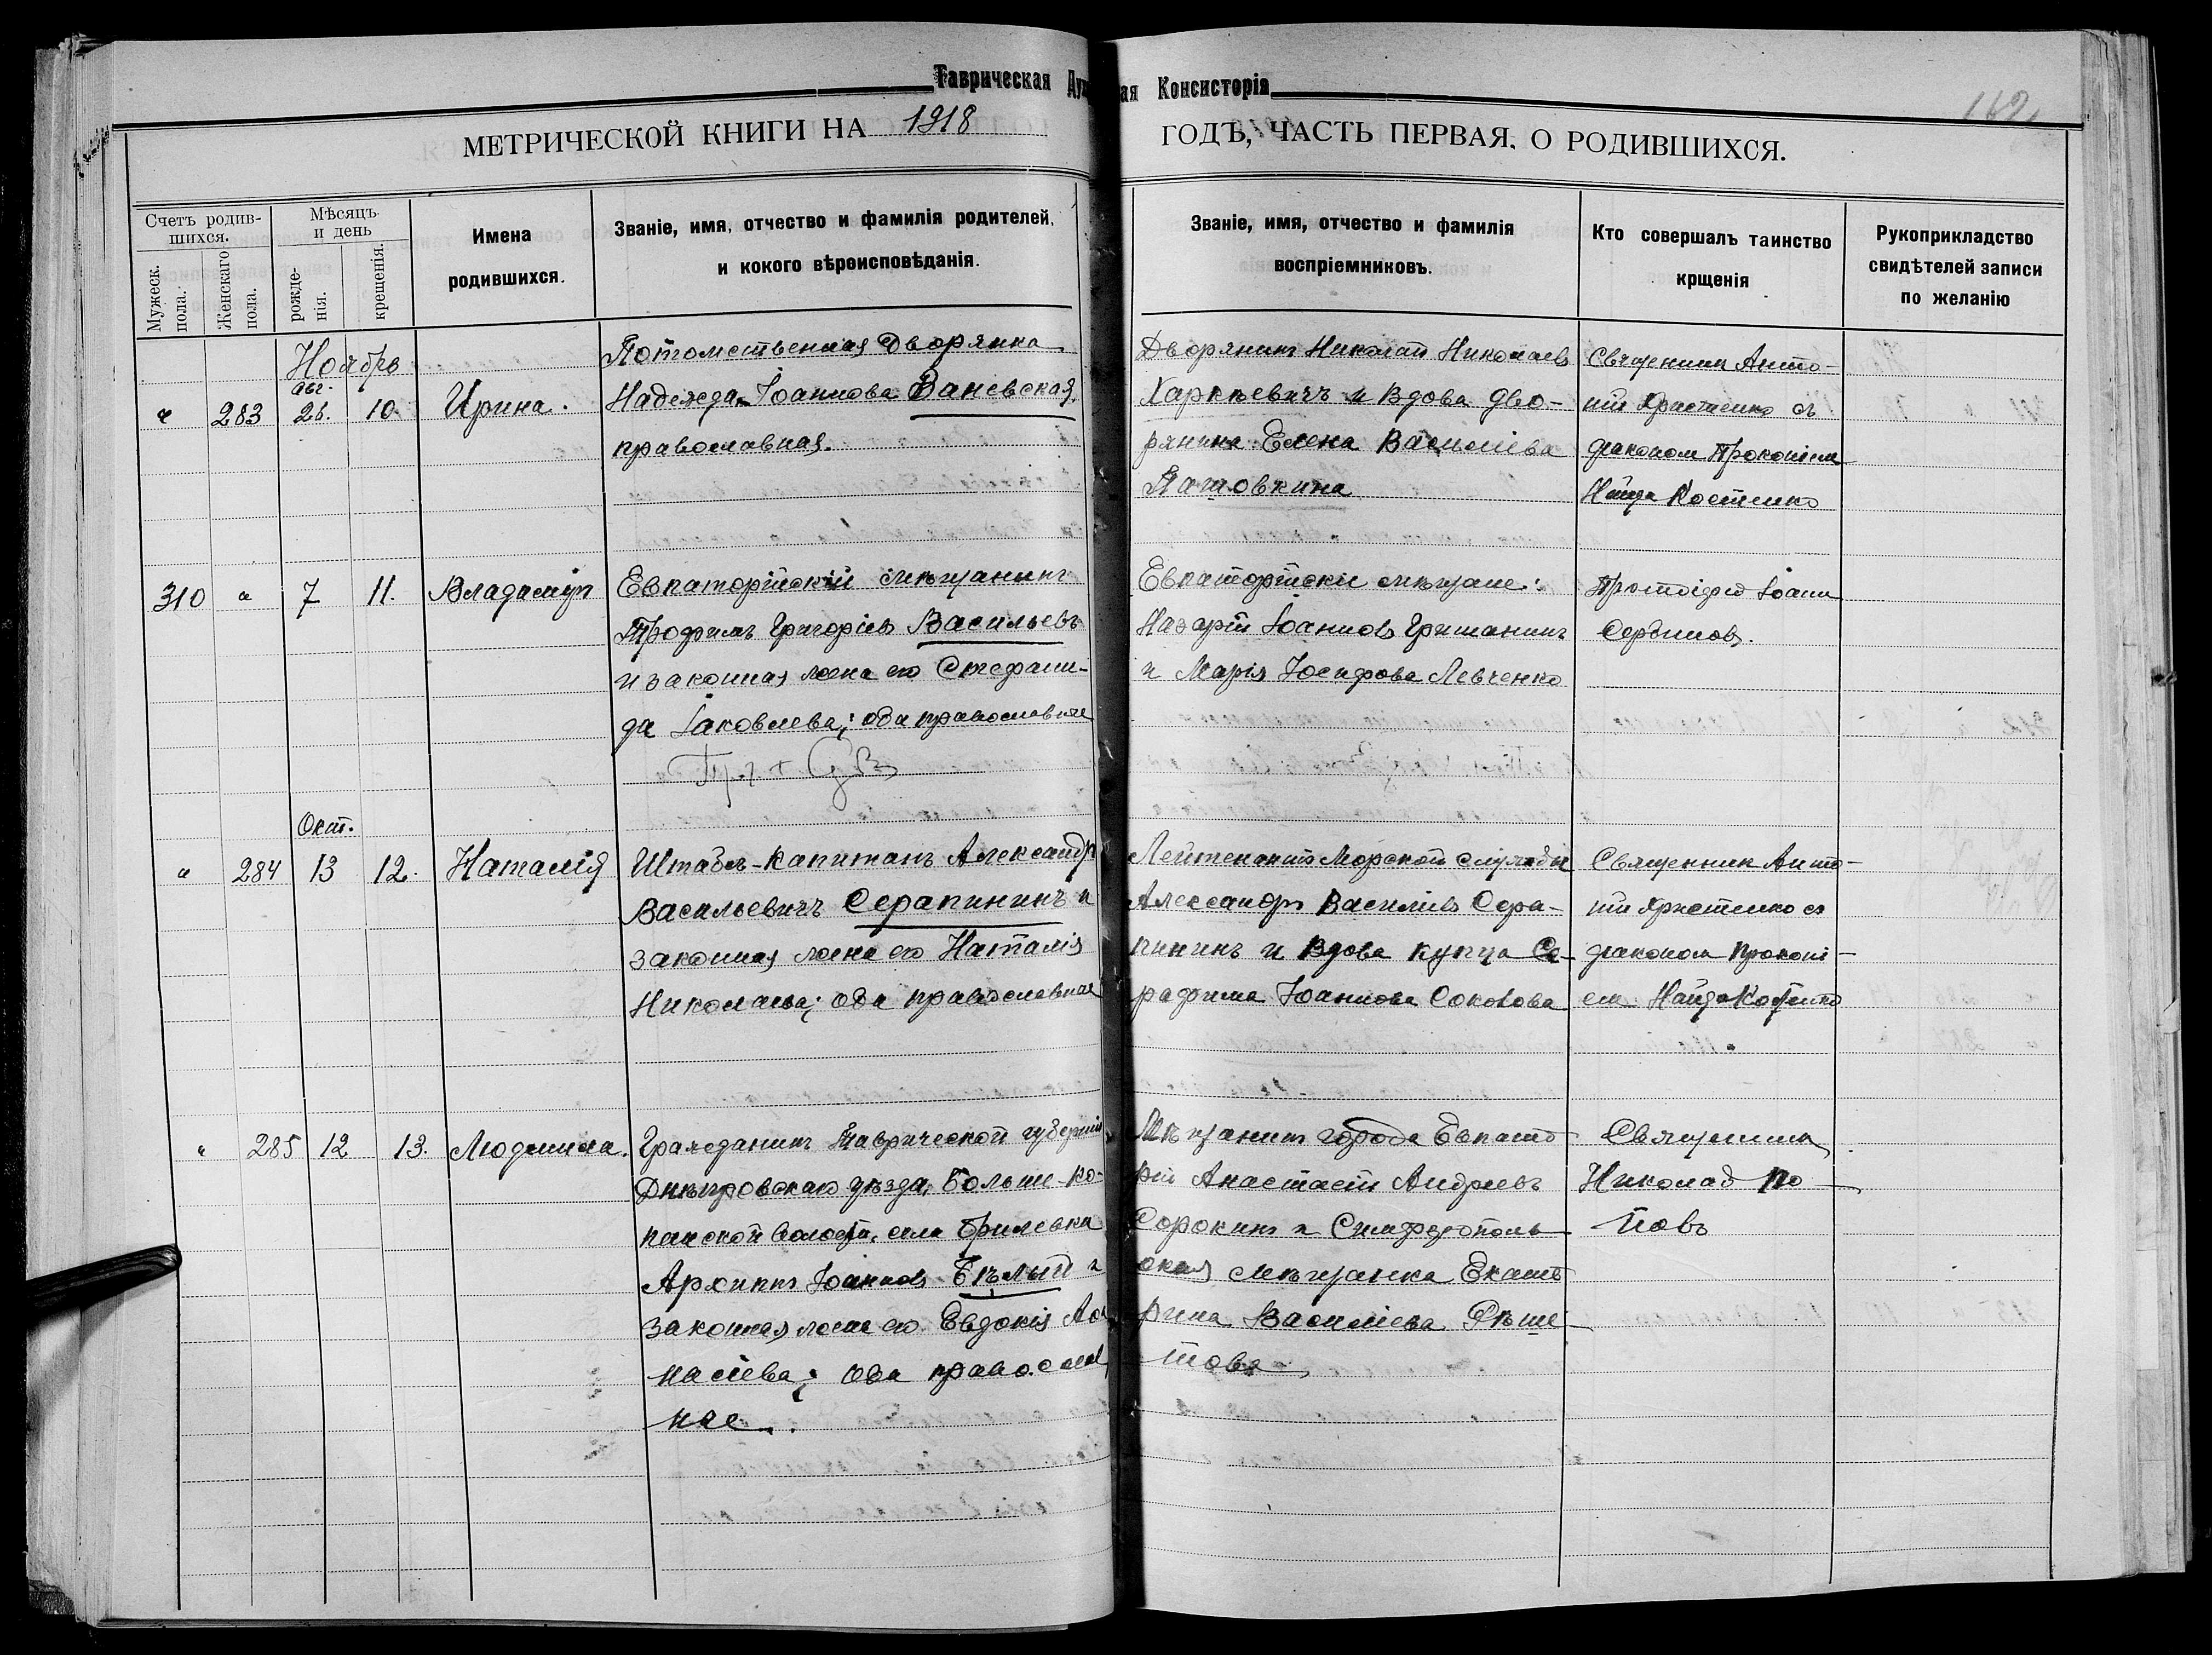 Таврическая Дух ая Консисторія
162
МЕТРИЧЕСКОЙ КНИГИ НА 1918 ГОДЪ, ЧАСТЬ ПЕРВАЯ, О РОДИВШИХСЯ.
Счетъ родив-
шихся.
Мужеск.
пола.
Женскаго
пола.
Мѣсяцъ
и день
рожде-
нія.
крещенія.
Имена
родившихся.
Званіе, имя, отчество и фамилія родителей,
и кокого вѣроисповѣданія.
Званіе, имя, отчество и фамилія
воспріемниковъ.
Кто совершалъ таинство
крщенія
Рукоприкладство
свидѣтелей записи
по желанію
Ноябрь
авг.
" 283 26. 10. Ирина.
Потомственная Дворянка
Надежда Іоаннова Ваневская,
православная.
Дворянинъ Николай Николаевъ
Харкевичъ и Вдова дво-
рянина Елена Василіева
Пашовкина
Священник Анто-
ній Христенко съ
діаконом Прокопіем
Найда Костенко
310 " 7 11. Владиміръ
Евпаторійскій мѣщанинъ
Трофимъ Григоріевъ Васильевъ
и законная жена его Стефани-
да Іаковлева; оба православные
Евпаторійскіе мѣщане:
Назарій Іоанновъ Гришанинъ
и Марія Іосифова Левченко
Протоіерей Іоанн
Сербиновъ.
Окт.
" 284 13 12. Наталія
Штабсъ-Капитанъ Александр
Васильевичъ Серапининъ и
законная жена его Наталія
Николаева; оба православные
Лейтенантъ Морской службы
Александръ Василіевъ Сера-
пининъ и Вдова купца Се-
рафима Іоаннова Соколова
Священник Анто-
ній Христенко съ
діаконом Прокопі-
ем Найда Костенко
" 285 12 13. Людмила.
Гражданинъ Таврической губерніи
Днѣпровскаго уѣзда, Больше-Ко-
панской волости, села Брилевки
Архиппъ Іоанновъ Бѣлый и
законная жена его Евдокія Аѳа
насіева; оба православ
ные.
Мѣщанинъ города Евпато
ріи Анастасій Андреевъ
Сорокинъ и Симферополь
ская мѣщанка Екате
рина Василіева Рѣше
това
Священник
Николай По
повъ